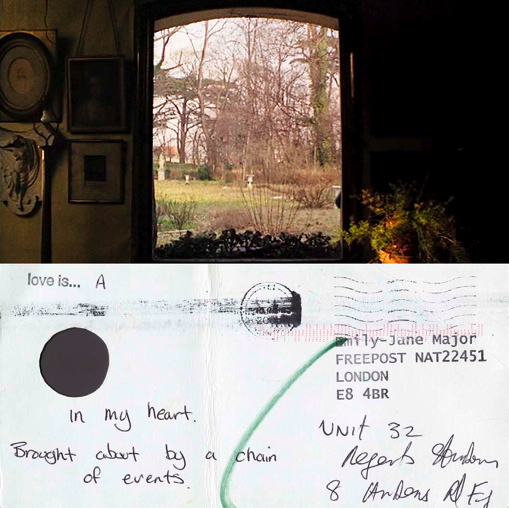 love is... A
Emily-Jane Major
FREEPOST NAT22451
LONDON
E8 4BR
in my heart.
Brought about by a chain
of events.
UNit 32
Regents
8